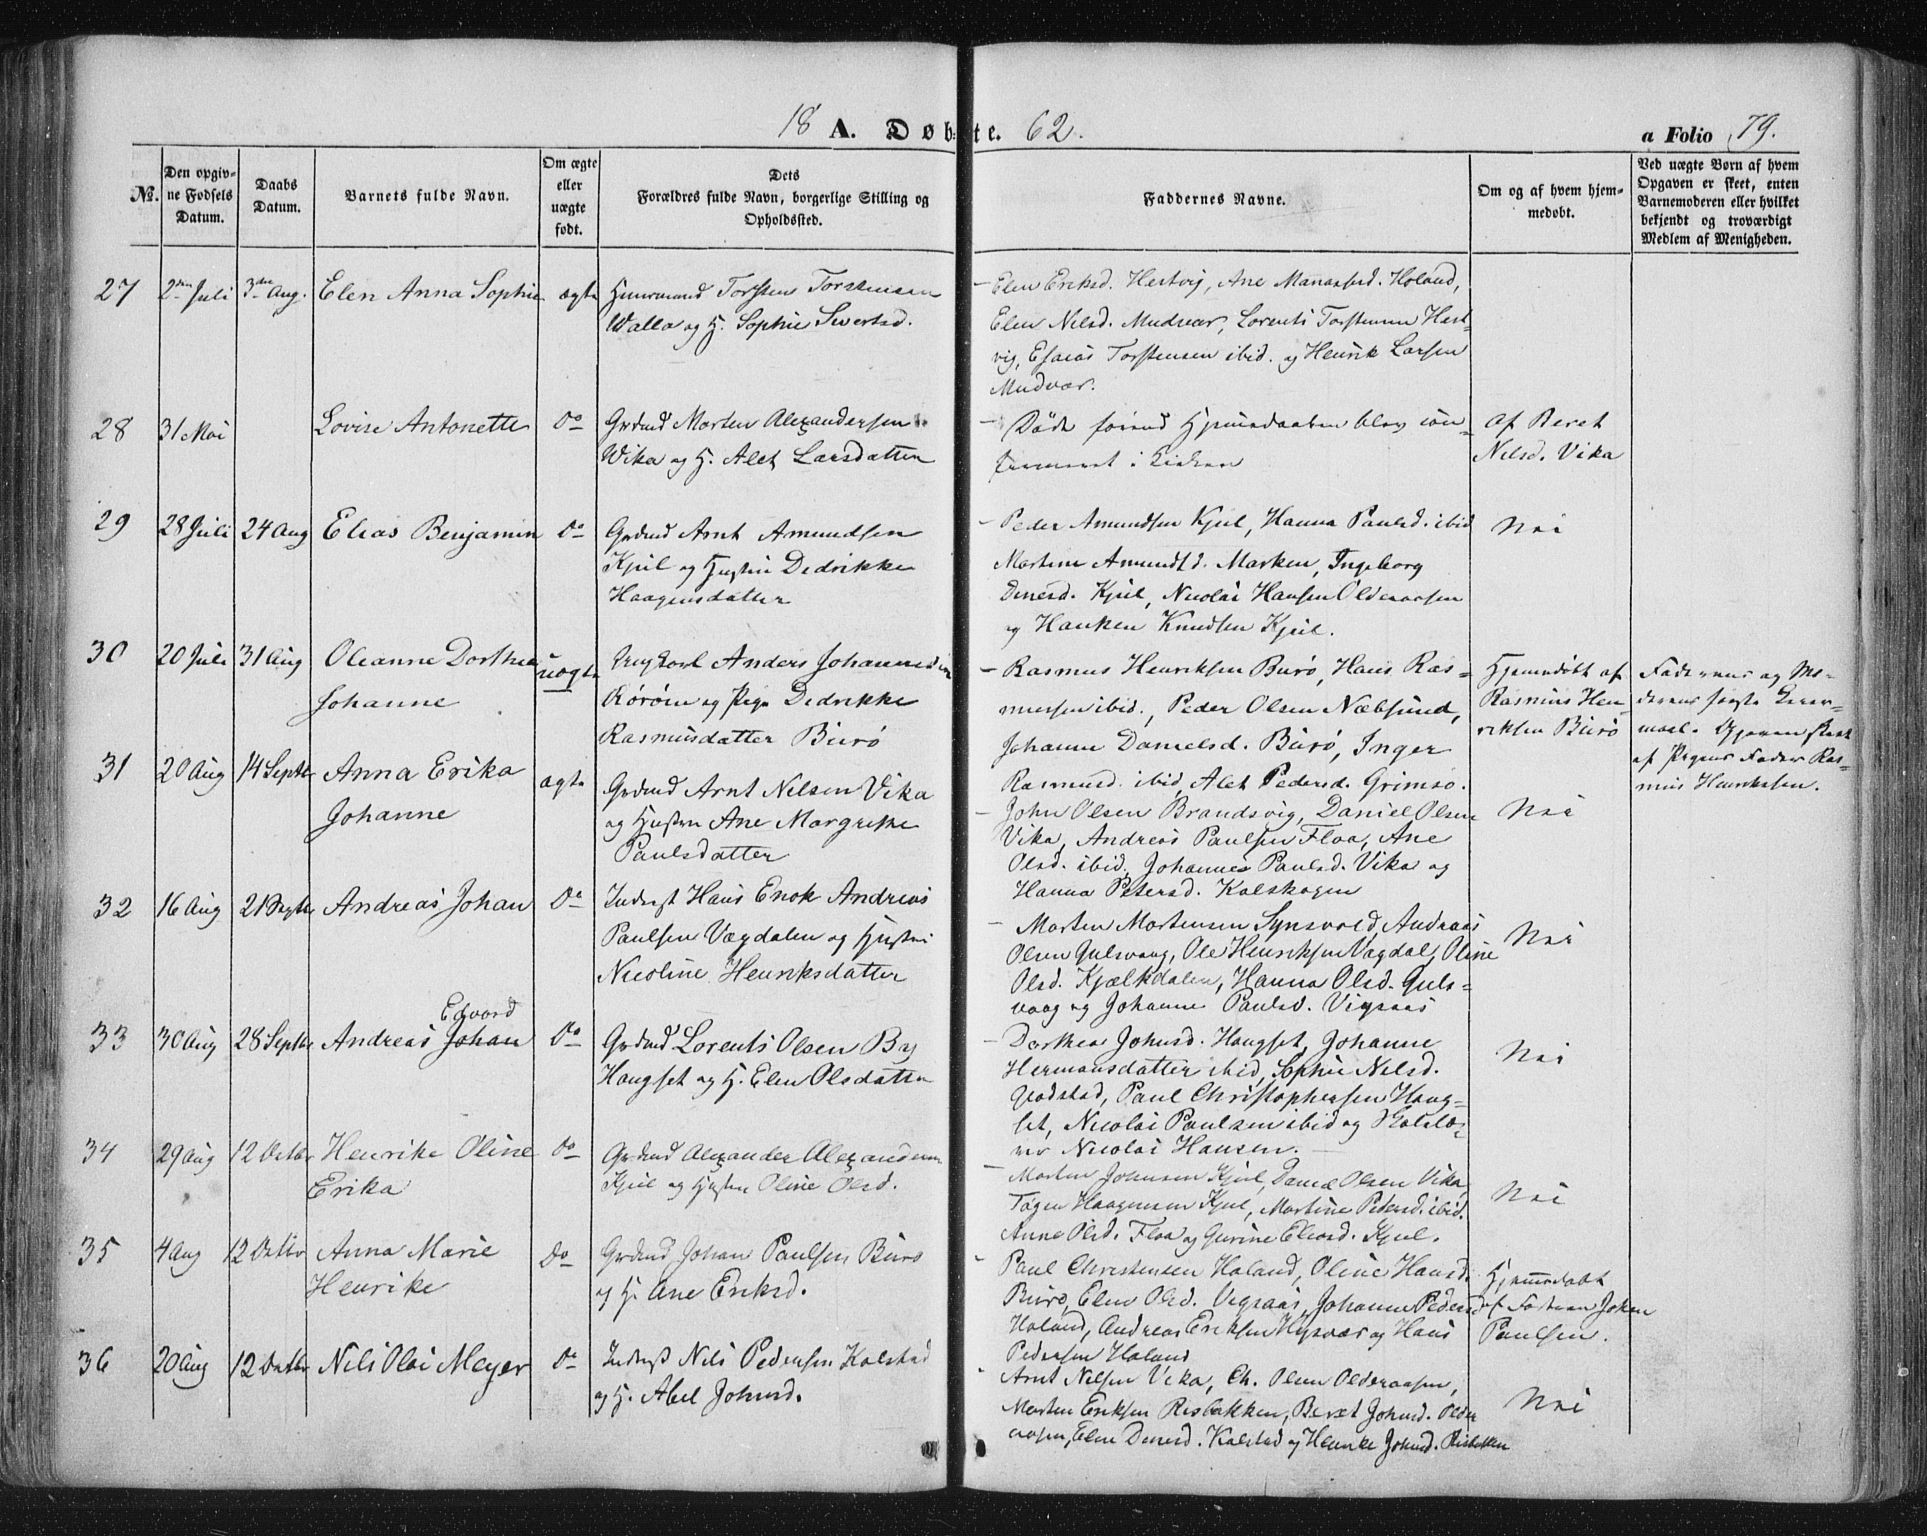 18 A. Døbte. 62.
a Folio 79.
No.
Den opgiv-
ne Fødsels
Datum.
Daabs
Datum.
Barnets fulde Navn.
Om ægte
eller
uægte
født.
Dets
Forældres fulde Navn, borgerlige Stilling og
Opholdssted.
Faddernes Navne.
Om og af hvem hjem-
medøbt.
Ved uægte Børn af hvem
Opgaven er skeet, enten
Barnemoderen eller hvilket
bekjendt og troværdigt
Medlem af Menigheden.
27 2den Juli 3die Aug. Elen Anna Sophie ægte
Huusmand Torsten Torstensen
Walla og H. Sophie Sivertsd.
Elen Eriksd. Hestvig, Ane Manassesd. Holand,
Elen Nilsd. Mudvær, Lorents Torstensen Hest-
vig, Esaias Torstensen ibid. og Henrik Larsen
Mudvær.
28 31 Mai Lovise Antonette Do
Grdmd Morten Alexandersen
Wika og H. Alet Larsdatter
Døde førend Hjemmedaaben blev con-
firmeret i Kirken
af Beret
Nilsd. Vika
29 28 Juli 24 Aug Elias Benjamin Do
Grdmd Arnt Amundsen
Kjul og Hustru Dedrikke
Haagensdatter
Peder Amundsen Kjul, Hanna Paulsd. ibid
Martine Amundsd. Marken, Ingeborg
Denesd. Kjul, Nicolai Hansen Olderaasen
og Hanken Knudsen Kjul.
Nei
30 20 Juli 31 Aug Oleanne Dorthea
Johanne
uægte
Ungkarl Anders Johannesen
Rørøen og Pige Dedrikke
Rasmusdatter Burø
Rasmus Henriksen Burø, Hans Ras-
mussen ibid., Peder Olsen Næbsund,
Johanne Danielsd. Burø, Inger
Rasmusd. ibid, Alet Pedersd. Grimsø.
Hjemmedøbt af
Rasmus Hen-
riksen Burø
Faderens og Mo-
derens første Leier-
maal. Opgaven skeet
af Pigens Fader Ras-
mus Henriksen.
31 20 Aug 14 Septbr Anna Erika
Johanne
ægte
Grdmd Arnt Nilsen Vika
og Hustru Ane Margrethe
Paulsdatter
John Olsen Brandsvig, Daniel Olsen
Vika, Andreas Paulsen Floa, Ane
Olsd. ibid, Johannes Paulsd. Vika og
Hanna Petersd. Kalskagen
Nei
32 16 Aug 21 Septbr Andreas Johan Do
Inderst Hans Enok Andreas
Paulsen Vægdalen og Hustru
Nicoline Henriksdatter
Morten Mortensen Synsvold, Andreas
Olsen Gulsvaag, Ole Henriksen Vægdal, Oline
Olsd. Kjælkdalen, Hanna Olsd. Guls-
vaag og Johanne Paulsd. Vigsaas
Nei
33 30 Aug 28 Septbr Andreas Johan Edvard Do
Grdmd Lorents Olsen By
Haugset og H. Elen Olsdatter
Dorthea Johnsd. Haugset, Johanne
Hermansdatter ibid, Sophie Nilsd.
Vadstad, Paul Christophersen Haug-
set, Nicolai Paulsen ibid og Skolelæ-
rer Nicolai Hansen.
Nei
34 29 Aug 12 Octbr Henrike Oline
Erika
Do
Grdmd Alexander Alexandersen
Kjul og Hustru Oline Olsd.
Morten Johnsen Kjul, Daniel Olsen Vika,
Tøger Haagensen Kjul, Martine Pedersd. ibid.
Anne Olsd. Floa og Gurine Eliasd. Kjul.
Nei
35 4 Aug 12 Octbr Anna Marie
Henrike
Do
Grdmd Johan Paulsen Burø
og H. Ane Eriksd.
Paul Christensen Holand, Oline Hansd.
Burø, Elen Olsd. Vigsaas, Johanne Pedersd
Holand, Andreas Eriksen Hysvær og Hans
Pedersen Holand
Hjemmedøbt
af Faderen Johan
Paulsen.
36 20 Aug 12 Octbr Nils Olai Meyer Do
Inderst Nils Pedersen Kalstad
og H. Abel Johnsd.
Arnt Nilsen Vika, Ch. Olsen Olderaasen,
Morten Eriksen Risbakken, Beret Johnsd. Older
aasen, Elen Denesd. Kalstad og Henrike Johnsd. Risbakken
Nei